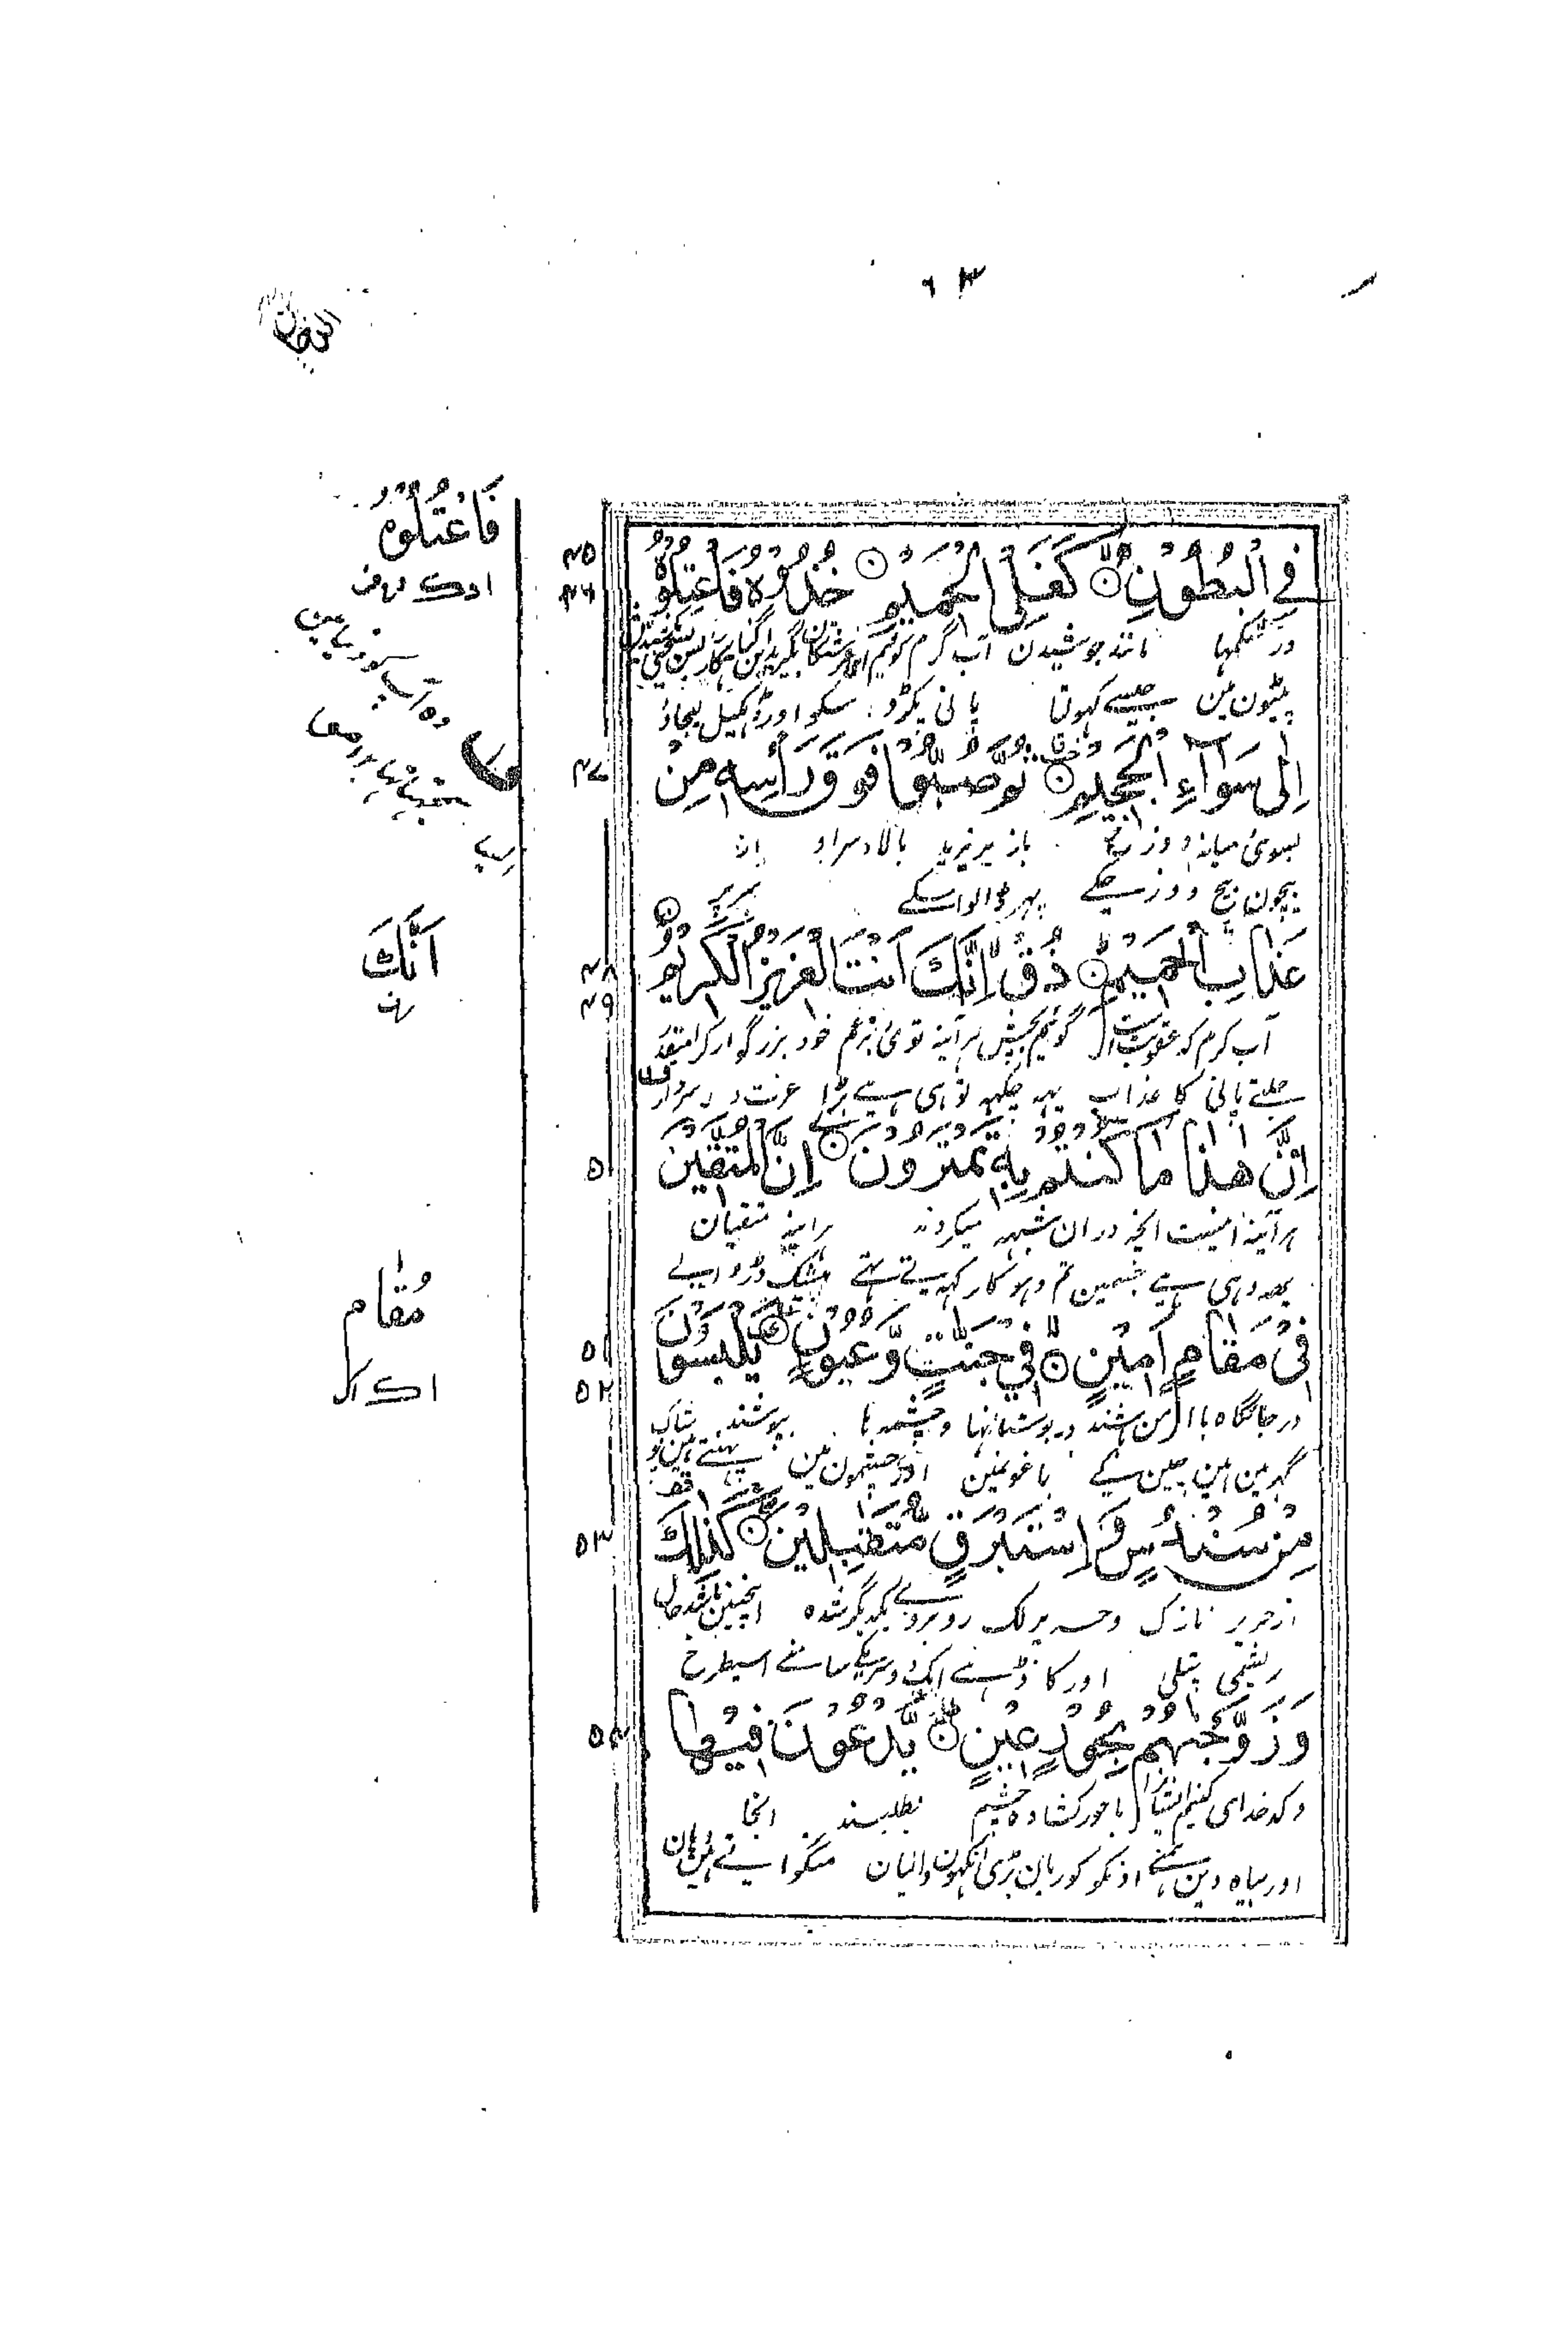 ۶۳
الدخان
۴۵
۴۶
فِي الْبُطُوْنِ ۙ كَغَلْيِ الْحَمِيْمِ خُذُوْهُ فَاعْتِلُوْهُ
در شکمها مانند جوشیدن آب گرم گوئیم
پیٹون مین جیسے کهولتا پانی پکڑو اسکو اور ڈهکیل لیجاؤ
۴۷
اِلٰى سَوَآءِ الْجَحِيْمِ ثُمَّ صُبُّوْا فَوْقَ رَاْسِهٖ مِنْ
بسوی میانه دوزخ باز بریزید بالاء سر او از
بیچون بیچ دوزخ کے پهر ڈالو اسکے سر پر
۴۸
۴۹
عَذَابِ الْحَمِيْمِ ذُقْ ۙ اِنَّكَ اَنْتَ الْعَزِيْزُ الْكَرِيْمُ
آب گرم که عقوبت است گوئیم بچش هر آینه توئی بزعم خود بزرگوار گرامیقدر
جلتے پانی کا عذاب یہہ چکهہ توهی هے بڑا عزت دار سردار
۵۰
اِنَّ هٰذَا مَا كُنْتُمْ بِهٖ تَمْتَرُوْنَ اِنَّ الْمُتَّقِيْنَ
هر آینه اینست آنچه در ان شبهه میکردند هر آینه متقیان
یهه وهی هے جسمین تم دهوکا رکهتے تهے بیشک ڈر والے
۵۱
۵۲
فِيْ مَقَامٍ اَمِيْنٍ ۙ فِيْ جَنّٰتٍ وَّعُيُوْنٍ يَلْبَسُوْنَ
در جائگاه با امن باشند در بوستانها و چشمه ها بپوشند
گهر مین هین چین کے باغونمین اور چشمون مین پهنتے هین
۵۳
مِنْ سُنْدُسٍ وَّاِسْتَبْرَقٍ مُّتَقٰبِلِيْنَ كَذٰلِكَ
از حریر نازک و حریر لک روبروے یکدیگر شده اینچنین باشد حال
ریشمی پتلی اور گاڑهے ایک دوسریکے سامنے اسیطرح
۵۴
وَزَوَّجْنٰهُمْ بِحُوْرٍ عِيْنٍ يَدْعُوْنَ فِيْهَا
و کدخدای کنیم ایشانرا با حور کشاده چشم بطلبند آنجا
اور بیاه دین همنے اونکو گوریان بڑی آنکهون والیان منگوا لیتے هین وهان
فَاعْتُلُوْهُ
اِنَّكَ
مُقَام